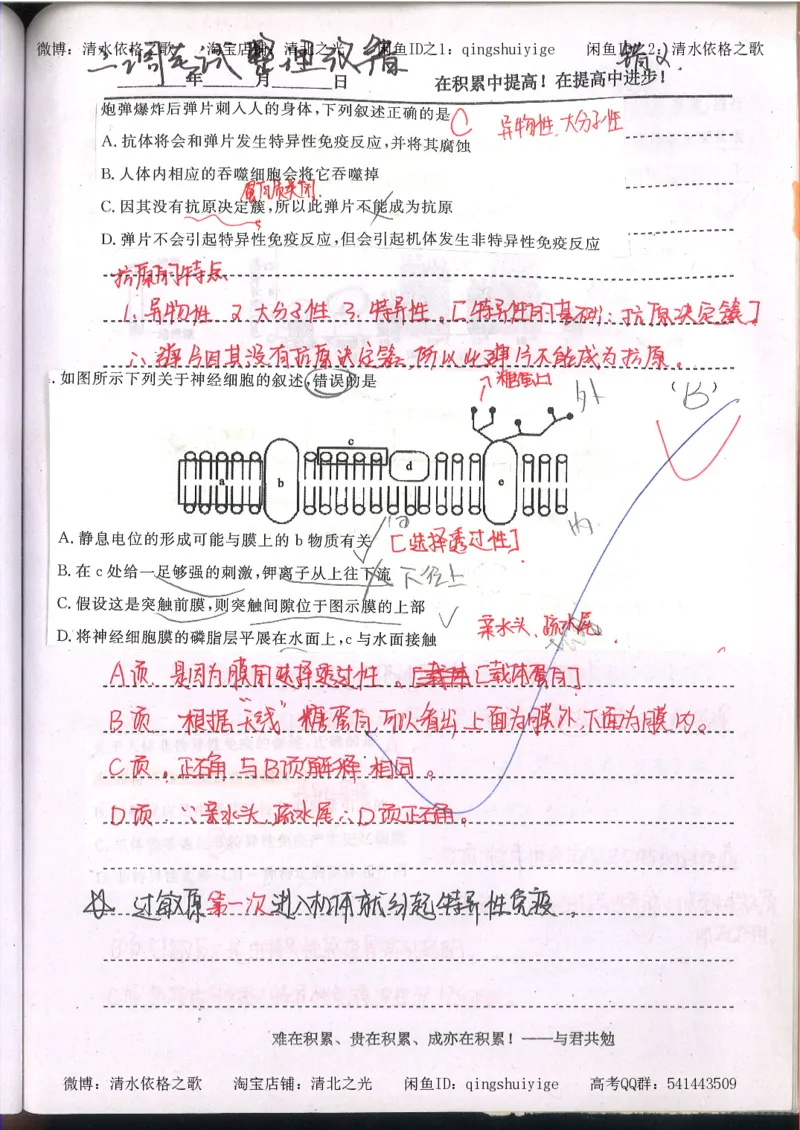 微博：清水依格之歌 淘宝店铺：清北之光 闲鱼ID之1：qingshuiyige 闲鱼ID之2：清水依格之歌
二调考试整理议错 错义.
年 月 日 在积累中提高！在提高中进步！
炮弹爆炸后弹片刺入人的身体，下列叙述正确的是 C 异物性、大分子性
A. 抗体将会和弹片发生特异性免疫反应，并将其腐蚀
B. 人体内相应的吞噬细胞会将它吞噬掉
C. 因其没有抗原决定簇，所以此弹片不能成为抗原
D. 弹片不会引起特异性免疫反应，但会引起机体发生非特异性免疫反应
抗原的特点
1. 异物性 2 大分子性 3. 特异性。[特异性的基础：抗原决定簇]
∴ 弹片因其没有抗原决定簇，所以此弹片不能成为抗原。
. 如图所示下列关于神经细胞的叙述，错误的是 （B）
↗糖蛋白
外
c
a b d e
内
A. 静息电位的形成可能与膜上的 b 物质有关 [选择透过性]
B. 在 c 处给一足够强的刺激，钾离子从上往下流 下往上
C. 假设这是突触前膜，则突触间隙位于图示膜的上部
D. 将神经细胞膜的磷脂层平展在水面上，c 与水面接触
亲水头、疏水尾.
A项. 是因为膜的选择透过性。[载体蛋白]
B项 根据"天线"糖蛋白可以看出上面为膜外，下面为膜内。
C项。正确 与B项解释 相同。
D项 ∵亲水头 疏水尾 ∴D项正确。
过敏原第一次进入机体就引起特异性免疫。
难在积累、贵在积累、成亦在积累！——与君共勉
微博：清水依格之歌 淘宝店铺：清北之光 闲鱼ID：qingshuiyige 高考QQ群：541443509